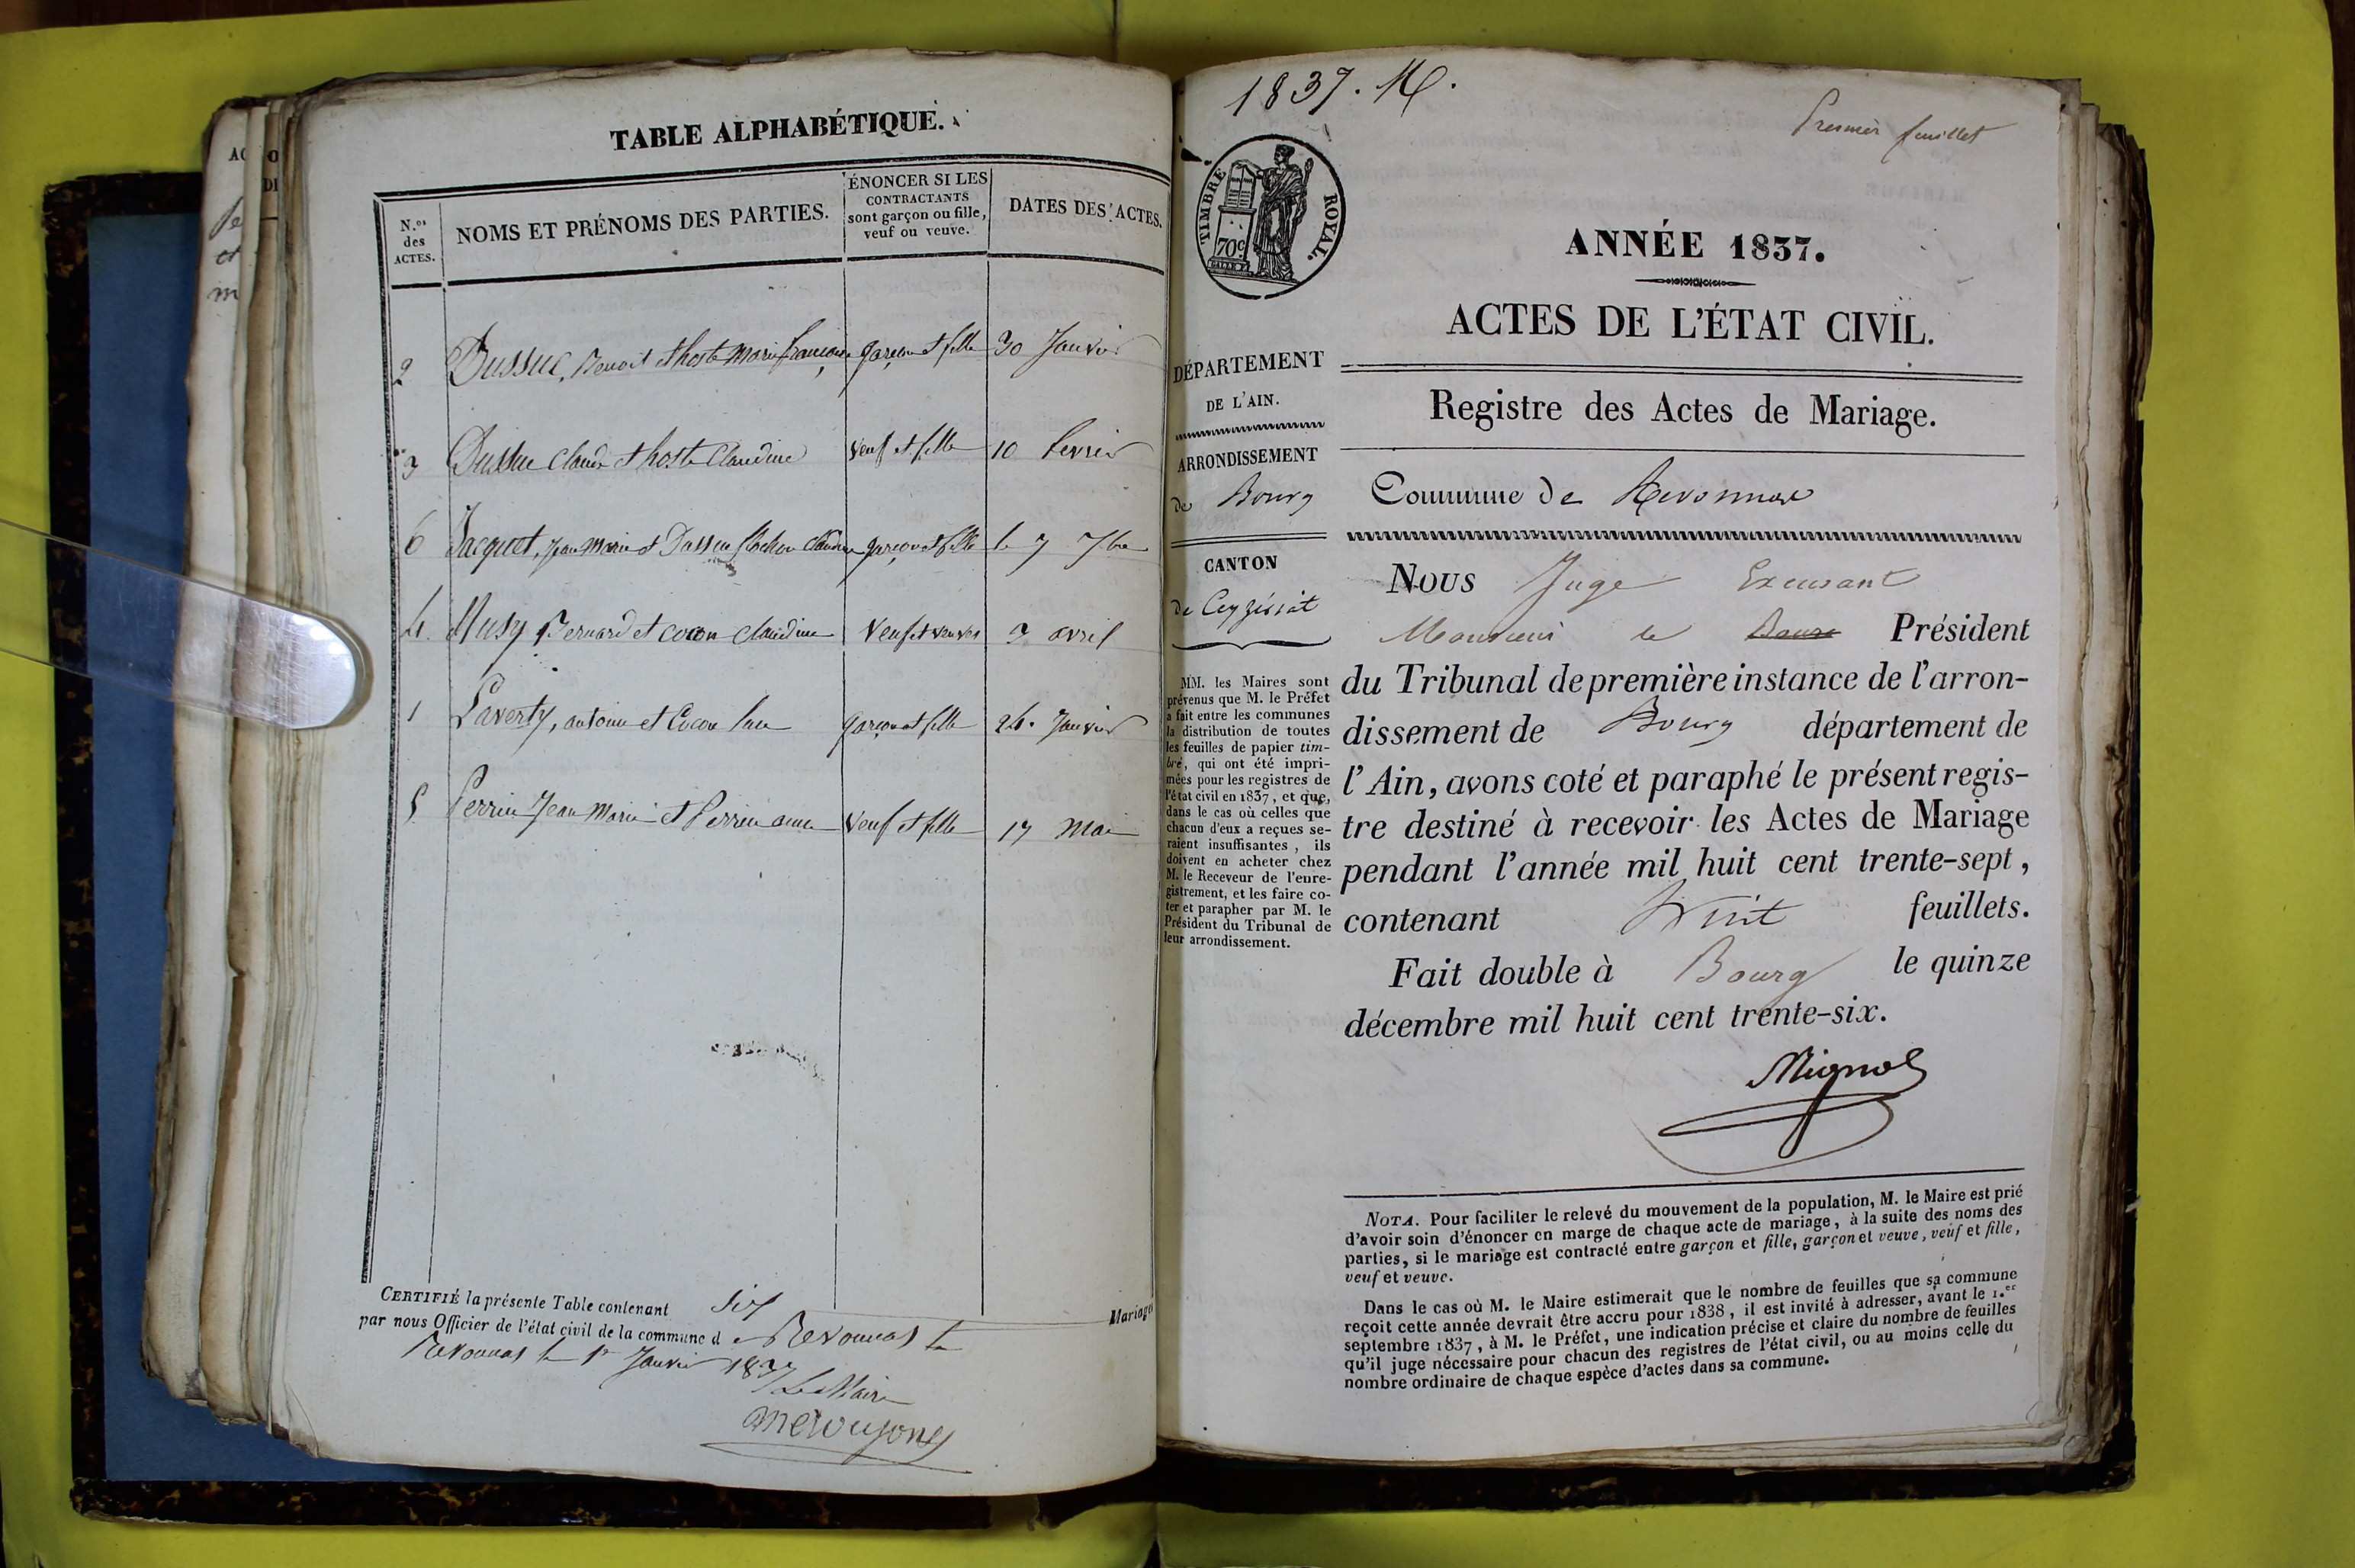 TABLE ALPHABÉTIQUE.
N.os des ACTES.
NOMS ET PRÉNOMS DES PARTIES.
ÉNONCER SI LES
CONTRACTANTS
sont garçon ou fille,
veuf ou veuve.
DATES DES ACTES.
2 Dussuc, Benoit et hoste marie françoise garçon et fille 30 Janvier
3 Dussuc Claude et hoste Claudine veuf et fille 10 fevrier
6 Jacquet, Jean Marie et Dassin Claudine garçon et fille le 7 7bre
4. Musy Bernard et cocon claudine veuf et veuve 3 avril
1 Paverty, antoine et Cocon garçon et fille 24. Janvier
5. Perrin Jean Marie et Perrin anne veuf et fille 17 Mai
CERTIFIÉ la présente Table contenant Six Mariages
par nous Officier de l'état civil de la commune de Revonnas le
Revonnas le 1er Janvier 1837
Le Maire
1837. M.
Premier feuillet
TIMBRE ROYAL.
70c
ANNÉE 1837.
ACTES DE L'ÉTAT CIVIL.
DÉPARTEMENT
DE L'AIN.
ARRONDISSEMENT
de Bourg
CANTON
de Ceyzériat
MM. les Maires sont
prévenus que M. le Préfet
a fait entre les communes
la distribution de toutes
les feuilles de papier tim-
bré, qui ont été impri-
mées pour les registres de
l'état civil en 1837, et que,
dans le cas où celles que
chacun d'eux a reçues se-
raient insuffisantes, ils
doivent en acheter chez
M. le Receveur de l'enre-
gistrement, et les faire co-
ter et parapher par M. le
Président du Tribunal de
leur arrondissement.
Registre des Actes de Mariage.
Commune de Revonnas
NOUS Juge Excusant
Monsieur le Président
du Tribunal de première instance de l'arron-
dissement de Bourg département de
l'Ain, avons coté et paraphé le présent regis-
tre destiné à recevoir les Actes de Mariage
pendant l'année mil huit cent trente-sept,
contenant huit feuillets.
Fait double à Bourg le quinze
décembre mil huit cent trente-six.
Mignol
NOTA. Pour faciliter le relevé du mouvement de la population, M. le Maire est prié
d'avoir soin d'énoncer en marge de chaque acte de mariage, à la suite des noms des
parties, si le mariage est contracté entre garçon et fille, garçon et veuve, veuf et fille,
veuf et veuve.
Dans le cas où M. le Maire estimerait que le nombre de feuilles que sa commune
reçoit cette année devrait être accru pour 1838, il est invité à adresser, avant le 1.er
septembre 1837, à M. le Préfet, une indication précise et claire du nombre de feuilles
qu'il juge nécessaire pour chacun des registres de l'état civil, ou au moins celle du
nombre ordinaire de chaque espèce d'actes dans sa commune.